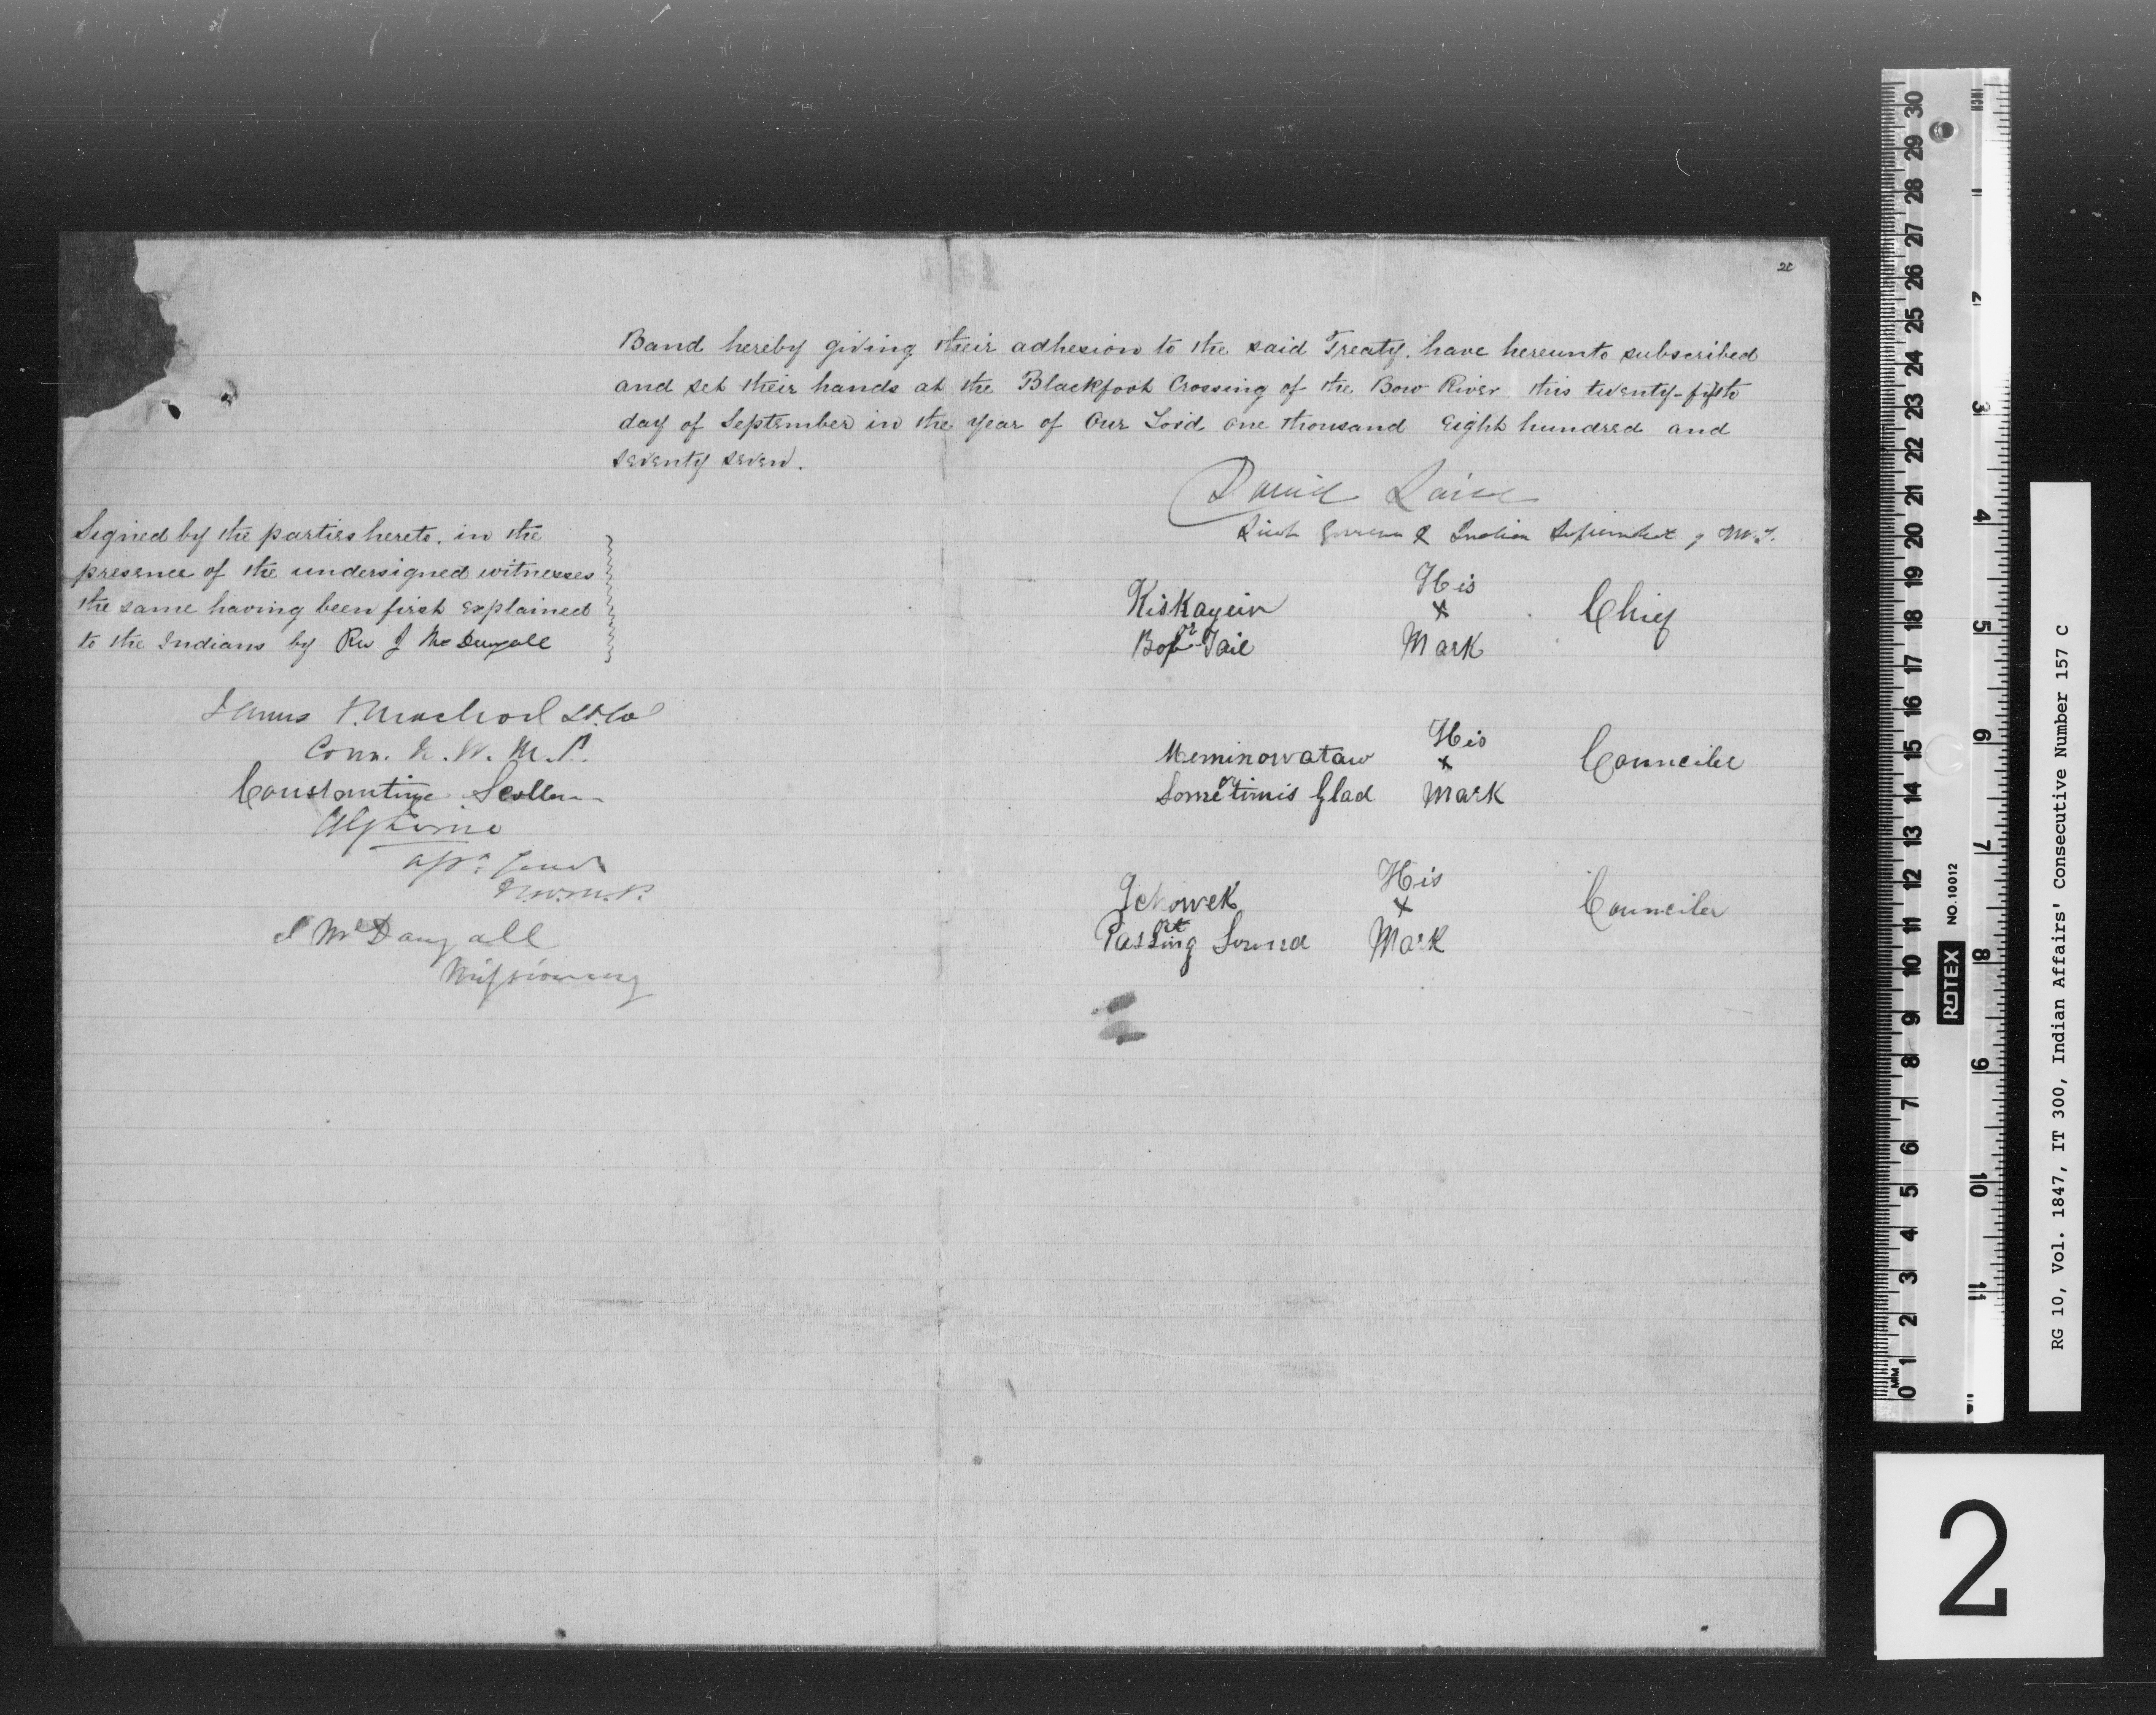 20
Band hereby giving their adhesion to the said Treaty. have hereunto subscribed
and set their hands at the Blackfoot Crossing of the Bow River this twenty-fifth
day of September in the year of Our Lord one thousand Eight hundred and
seventy seven.
David Laird
Lieut Governor & Indian Superintdt of N.W.T.
Signed by the parties hereto. in the
presence of the undersigned witnesses
the same having been first explained
to the Indians by Rev J McDougall
James F. Macleod Lt. Col
Com. N. W. M. P.
Constantine Scollen
N.W.M.P.
J McDougall
Missionary
Kiskayein His Chief
or x
Bob Tail Mark
Meminowataw His Counciler
or x
Sometimes Glad Mark
His Counciler
or x
Passing Sound Mark
MM 0 1 2 3 4 5 6 7 8 9 10 11 12 13 14 15 16 17 18 19 20 21 22 23 24 25 26 27 28 29 30
ROTEX NO.10012
INCH 1 2 3 4 5 6 7 8 9 10 11
RG 10, Vol. 1847, IT 300, Indian Affairs' Consecutive Number 157 C
2